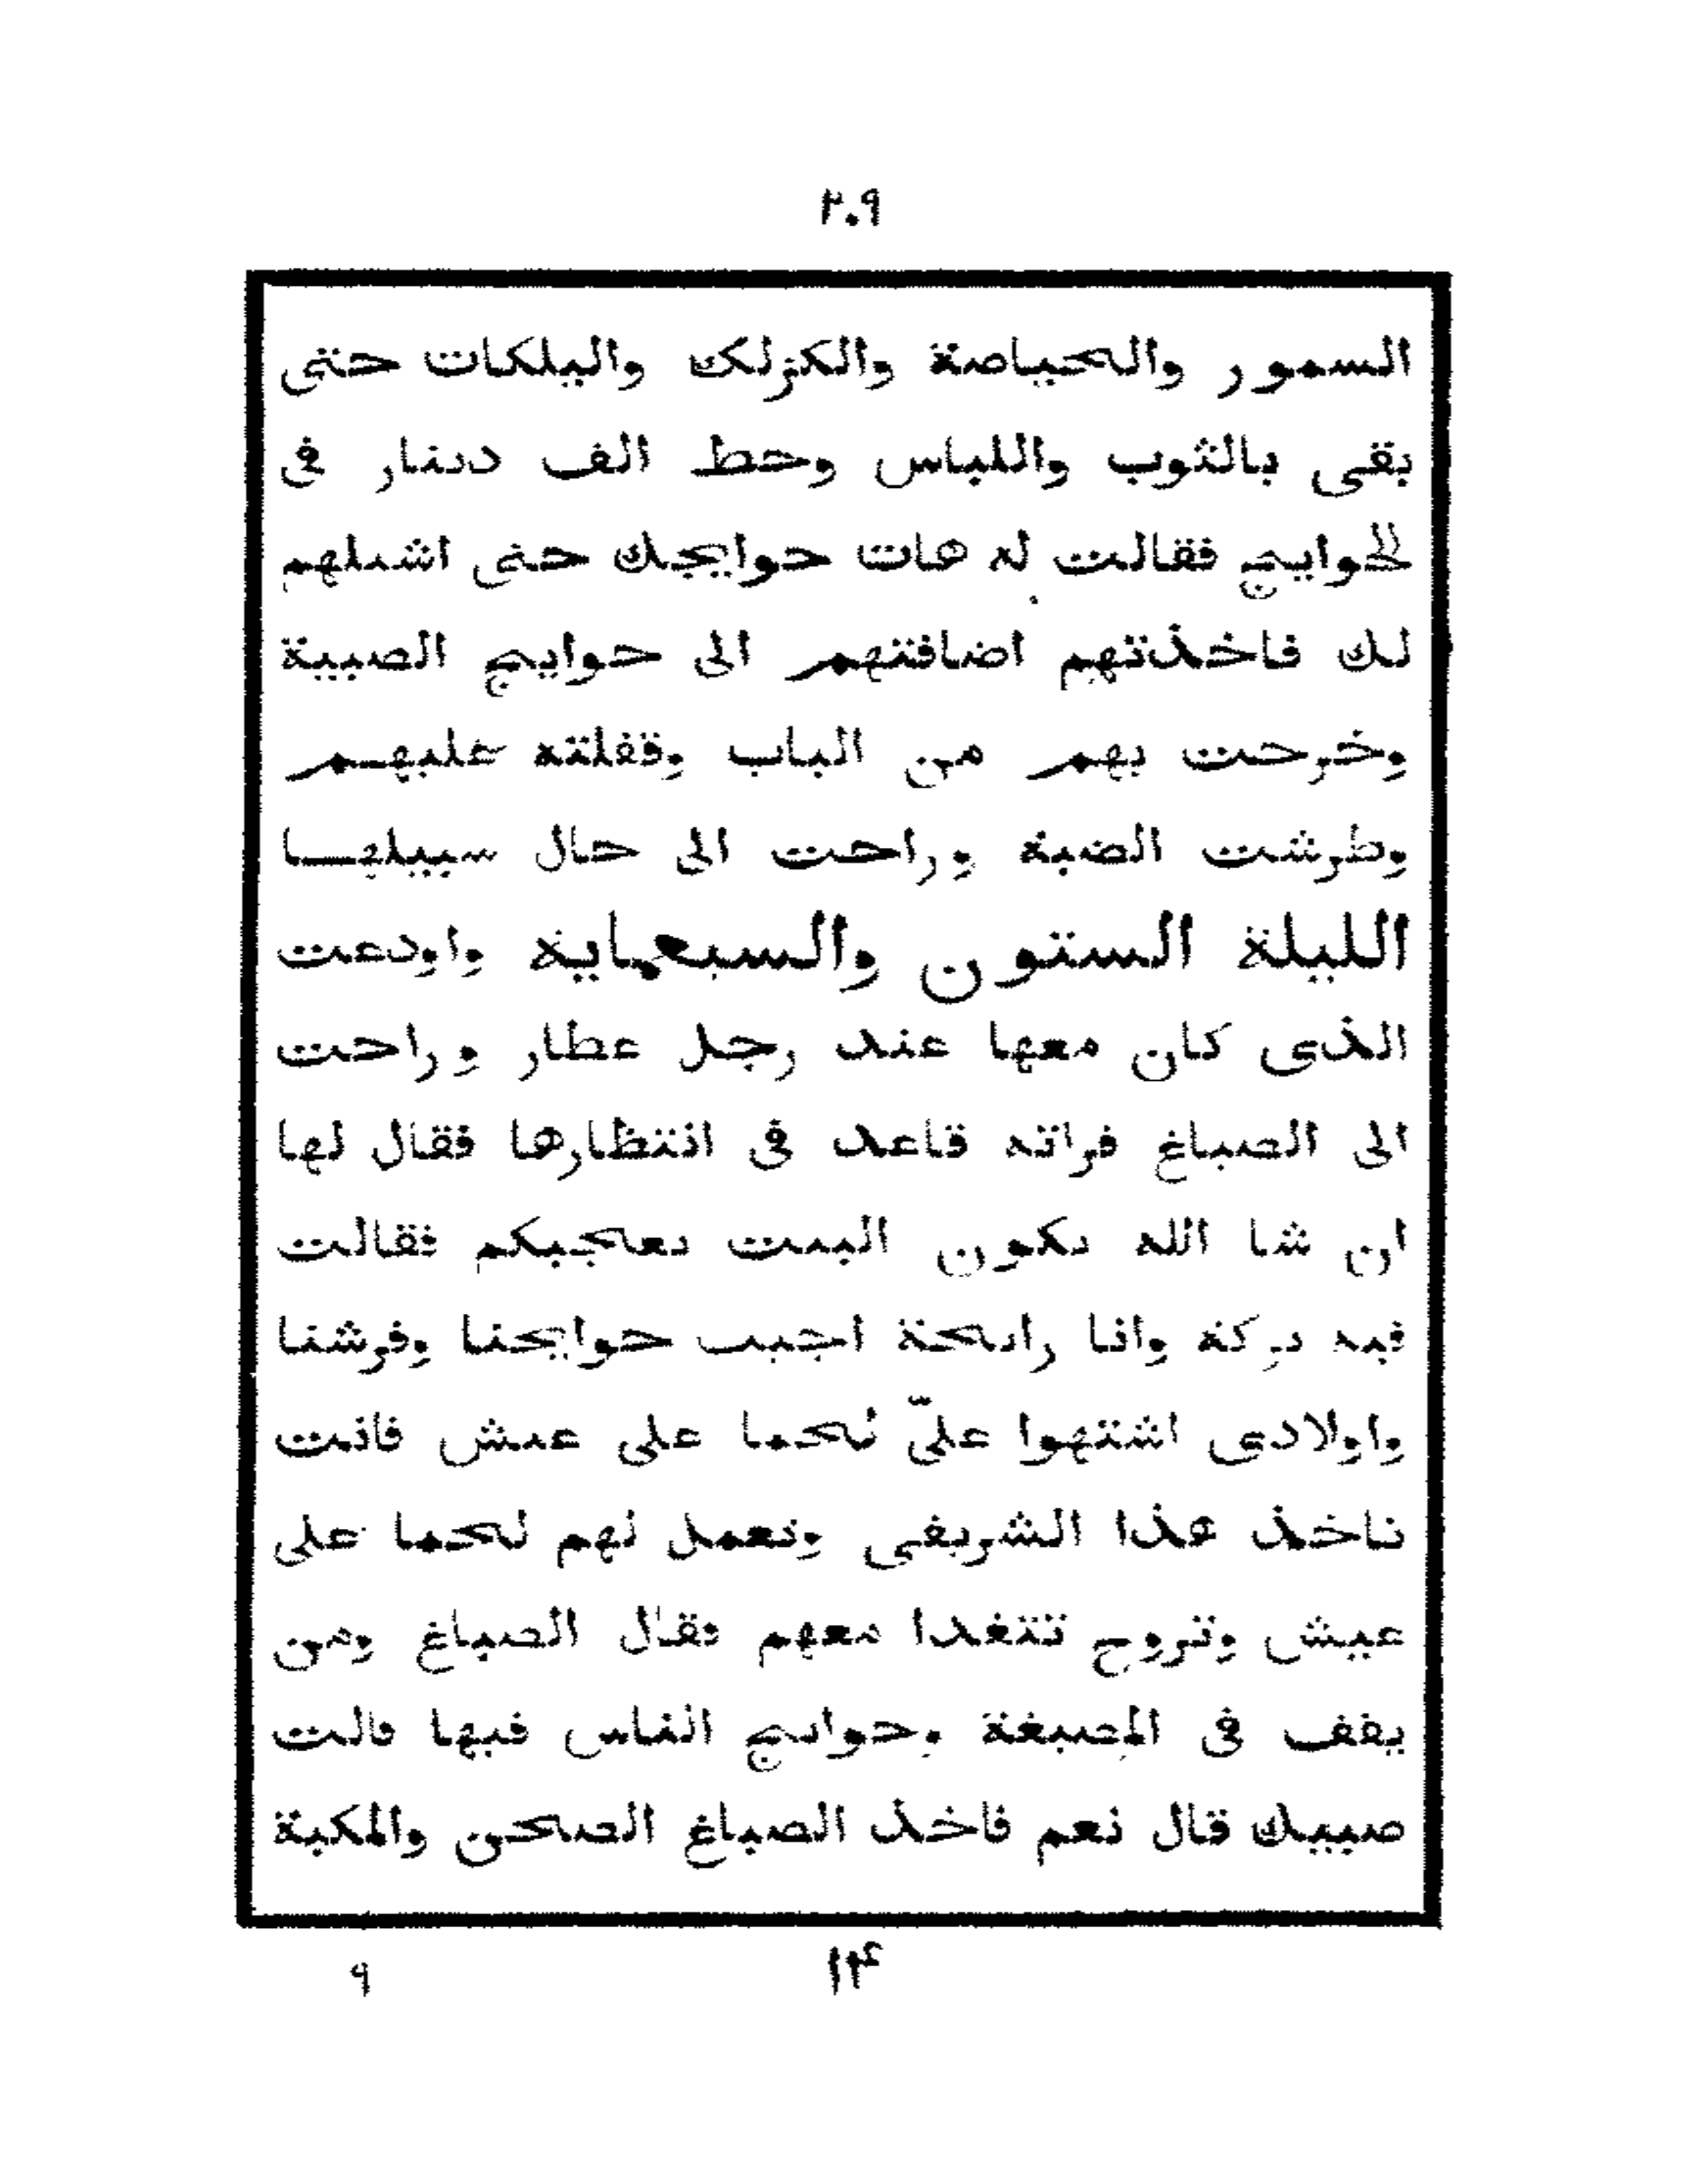 ٢٠٩
السمور والحياصة والكزلك واليلكات حتى
بقى بالثوب واللباس وحط الف دينار فى
الحوايج فقالت له هات حوايجك حتى اشيلهم
لك فاخذتهم اضافتهم الى حوايج الصبية
وخرجت بهم من الباب وقفلته عليهم
وطرشت الضبة وراحت الى حال سبيلها
الليلة الستون والسبعماية واودعت
الذى كان معها عند رجل عطار وراحت
الى الصباغ فراته قاعد فى انتظارها فقال لها
ان شا الله يكون البيت يعجبكم فقالت
فيه بركة وانا رايحة اجيب حوايجنا وفرشنا
واولادى اشتهوا علىّ لحما على عيش فانت
تاخذ هذا الشريفى وتعمل لهم لحما على
عيش وتروح تتغدا معهم فقال الصباغ ومن
يقف فى المصبغة وحوايج الناس فيها قالت
صبيك قال نعم فاخذ الصباغ الصحن والمكبة
١۴
٩